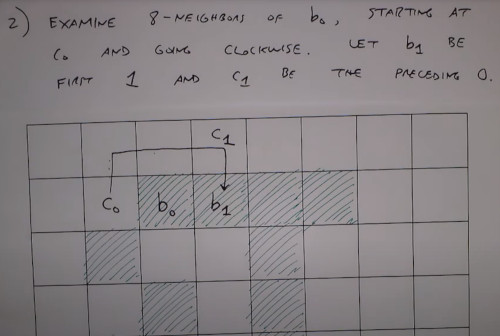 2) EXAMINE 8-NEIGHBORS OF b₀, STARTING AT
C₀ AND GOING CLOCKWISE. LET b₁ BE
FIRST 1 AND C₁ BE THE PRECEDING 0.
C₁
C₀ b₀ b₁